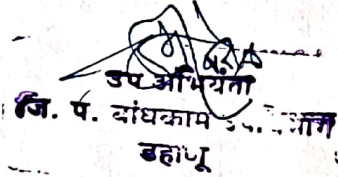 उप अभियंता
जि. प. बांधकाम उप. विभाग
डहाणू